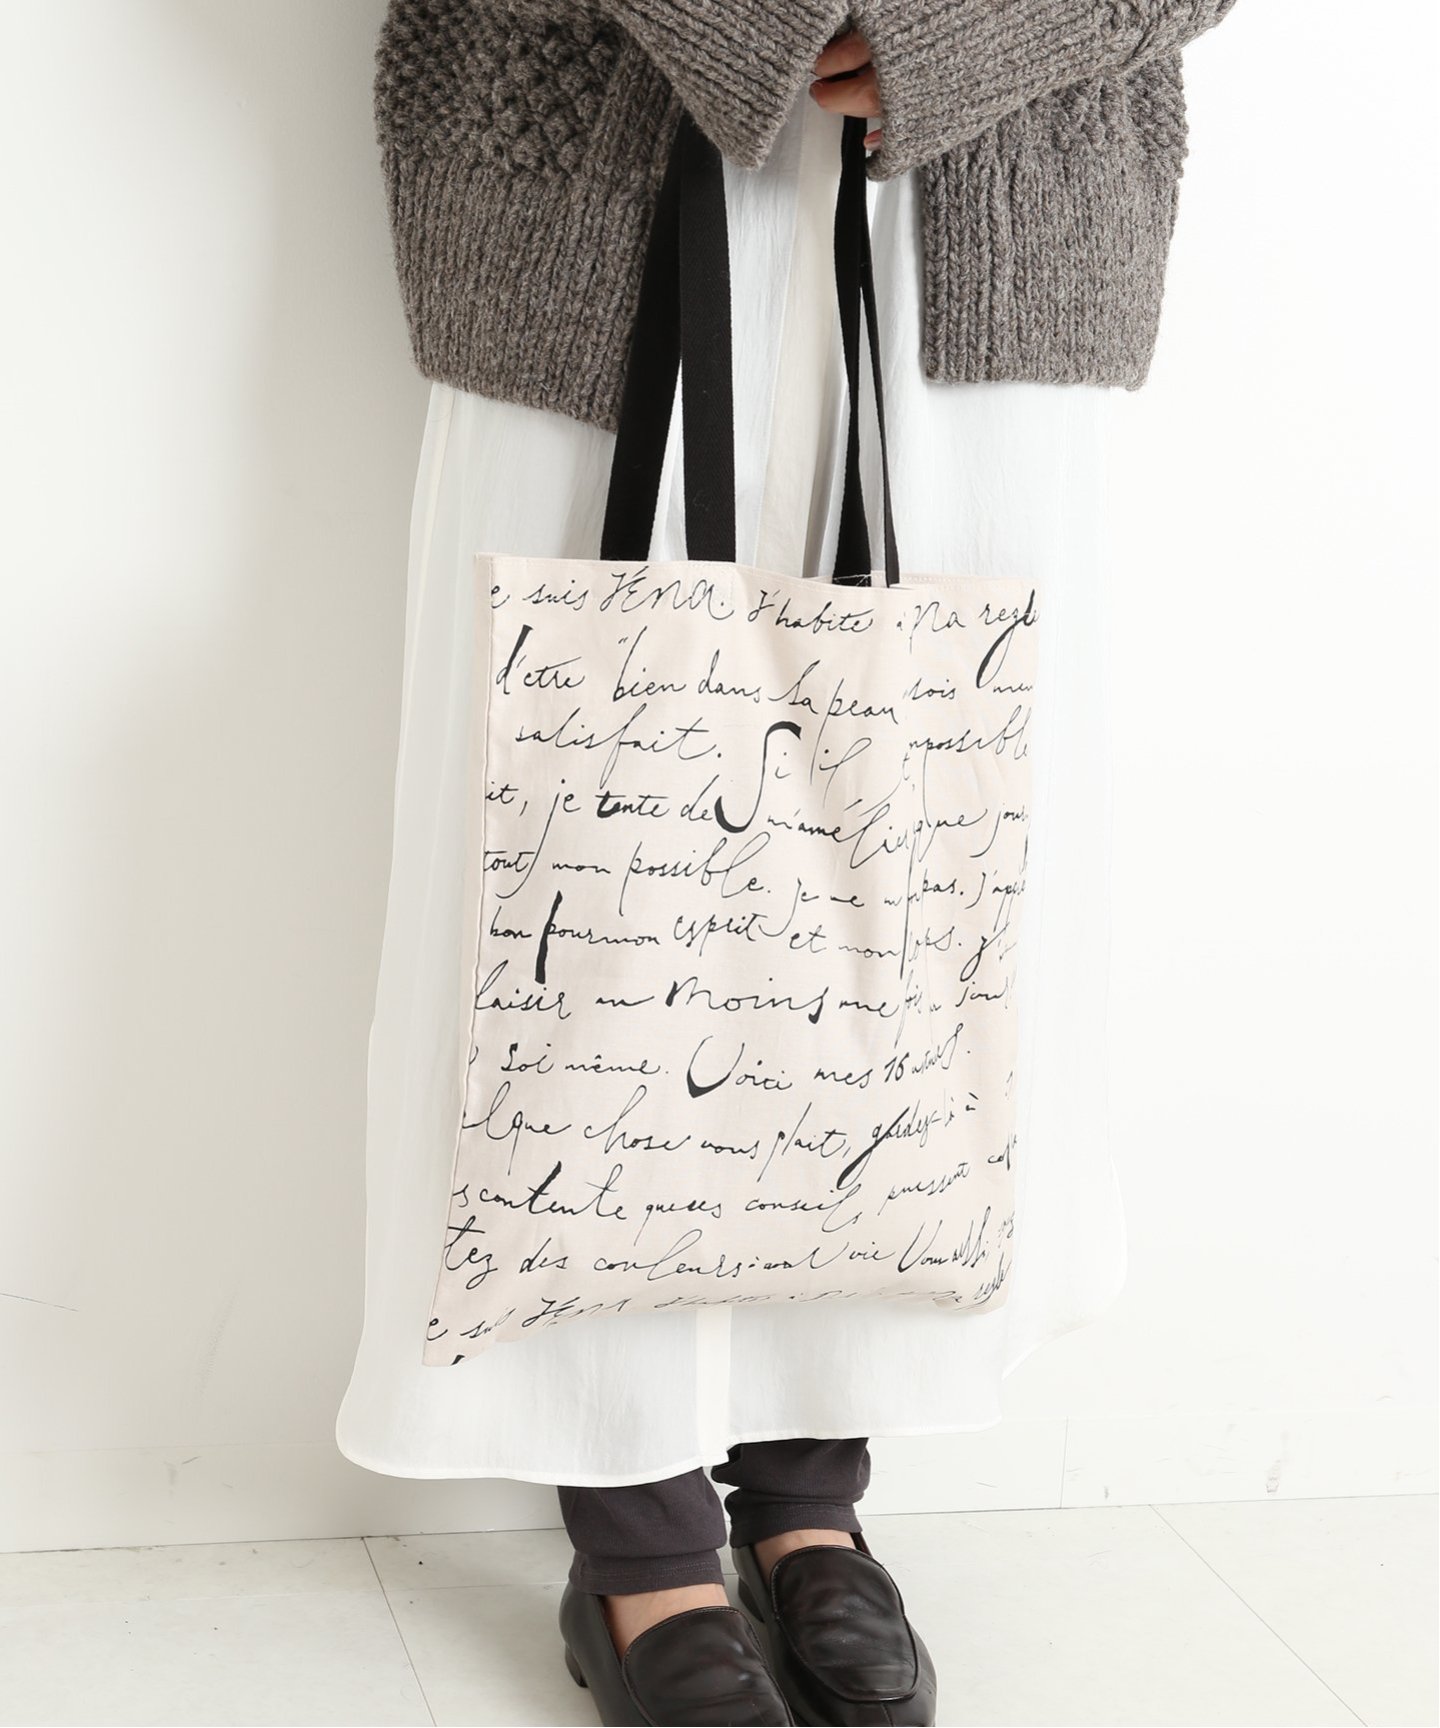 e suis IÉNA. J'habite à
d'etre "bien dans sa peau" sois
satisfait. Si il impossible
it, je tente de m'amélio que jour
tout mon possible. je ne pas. J'app
bon pour mon esprit et mon
laisir au moins une fois jour
soi même. Voici mes 16
elque chose vous plait, gardez-là à
s contente que ses conseils puissent
tez des couleurs: vie Vous aussi
e suis IÉNA